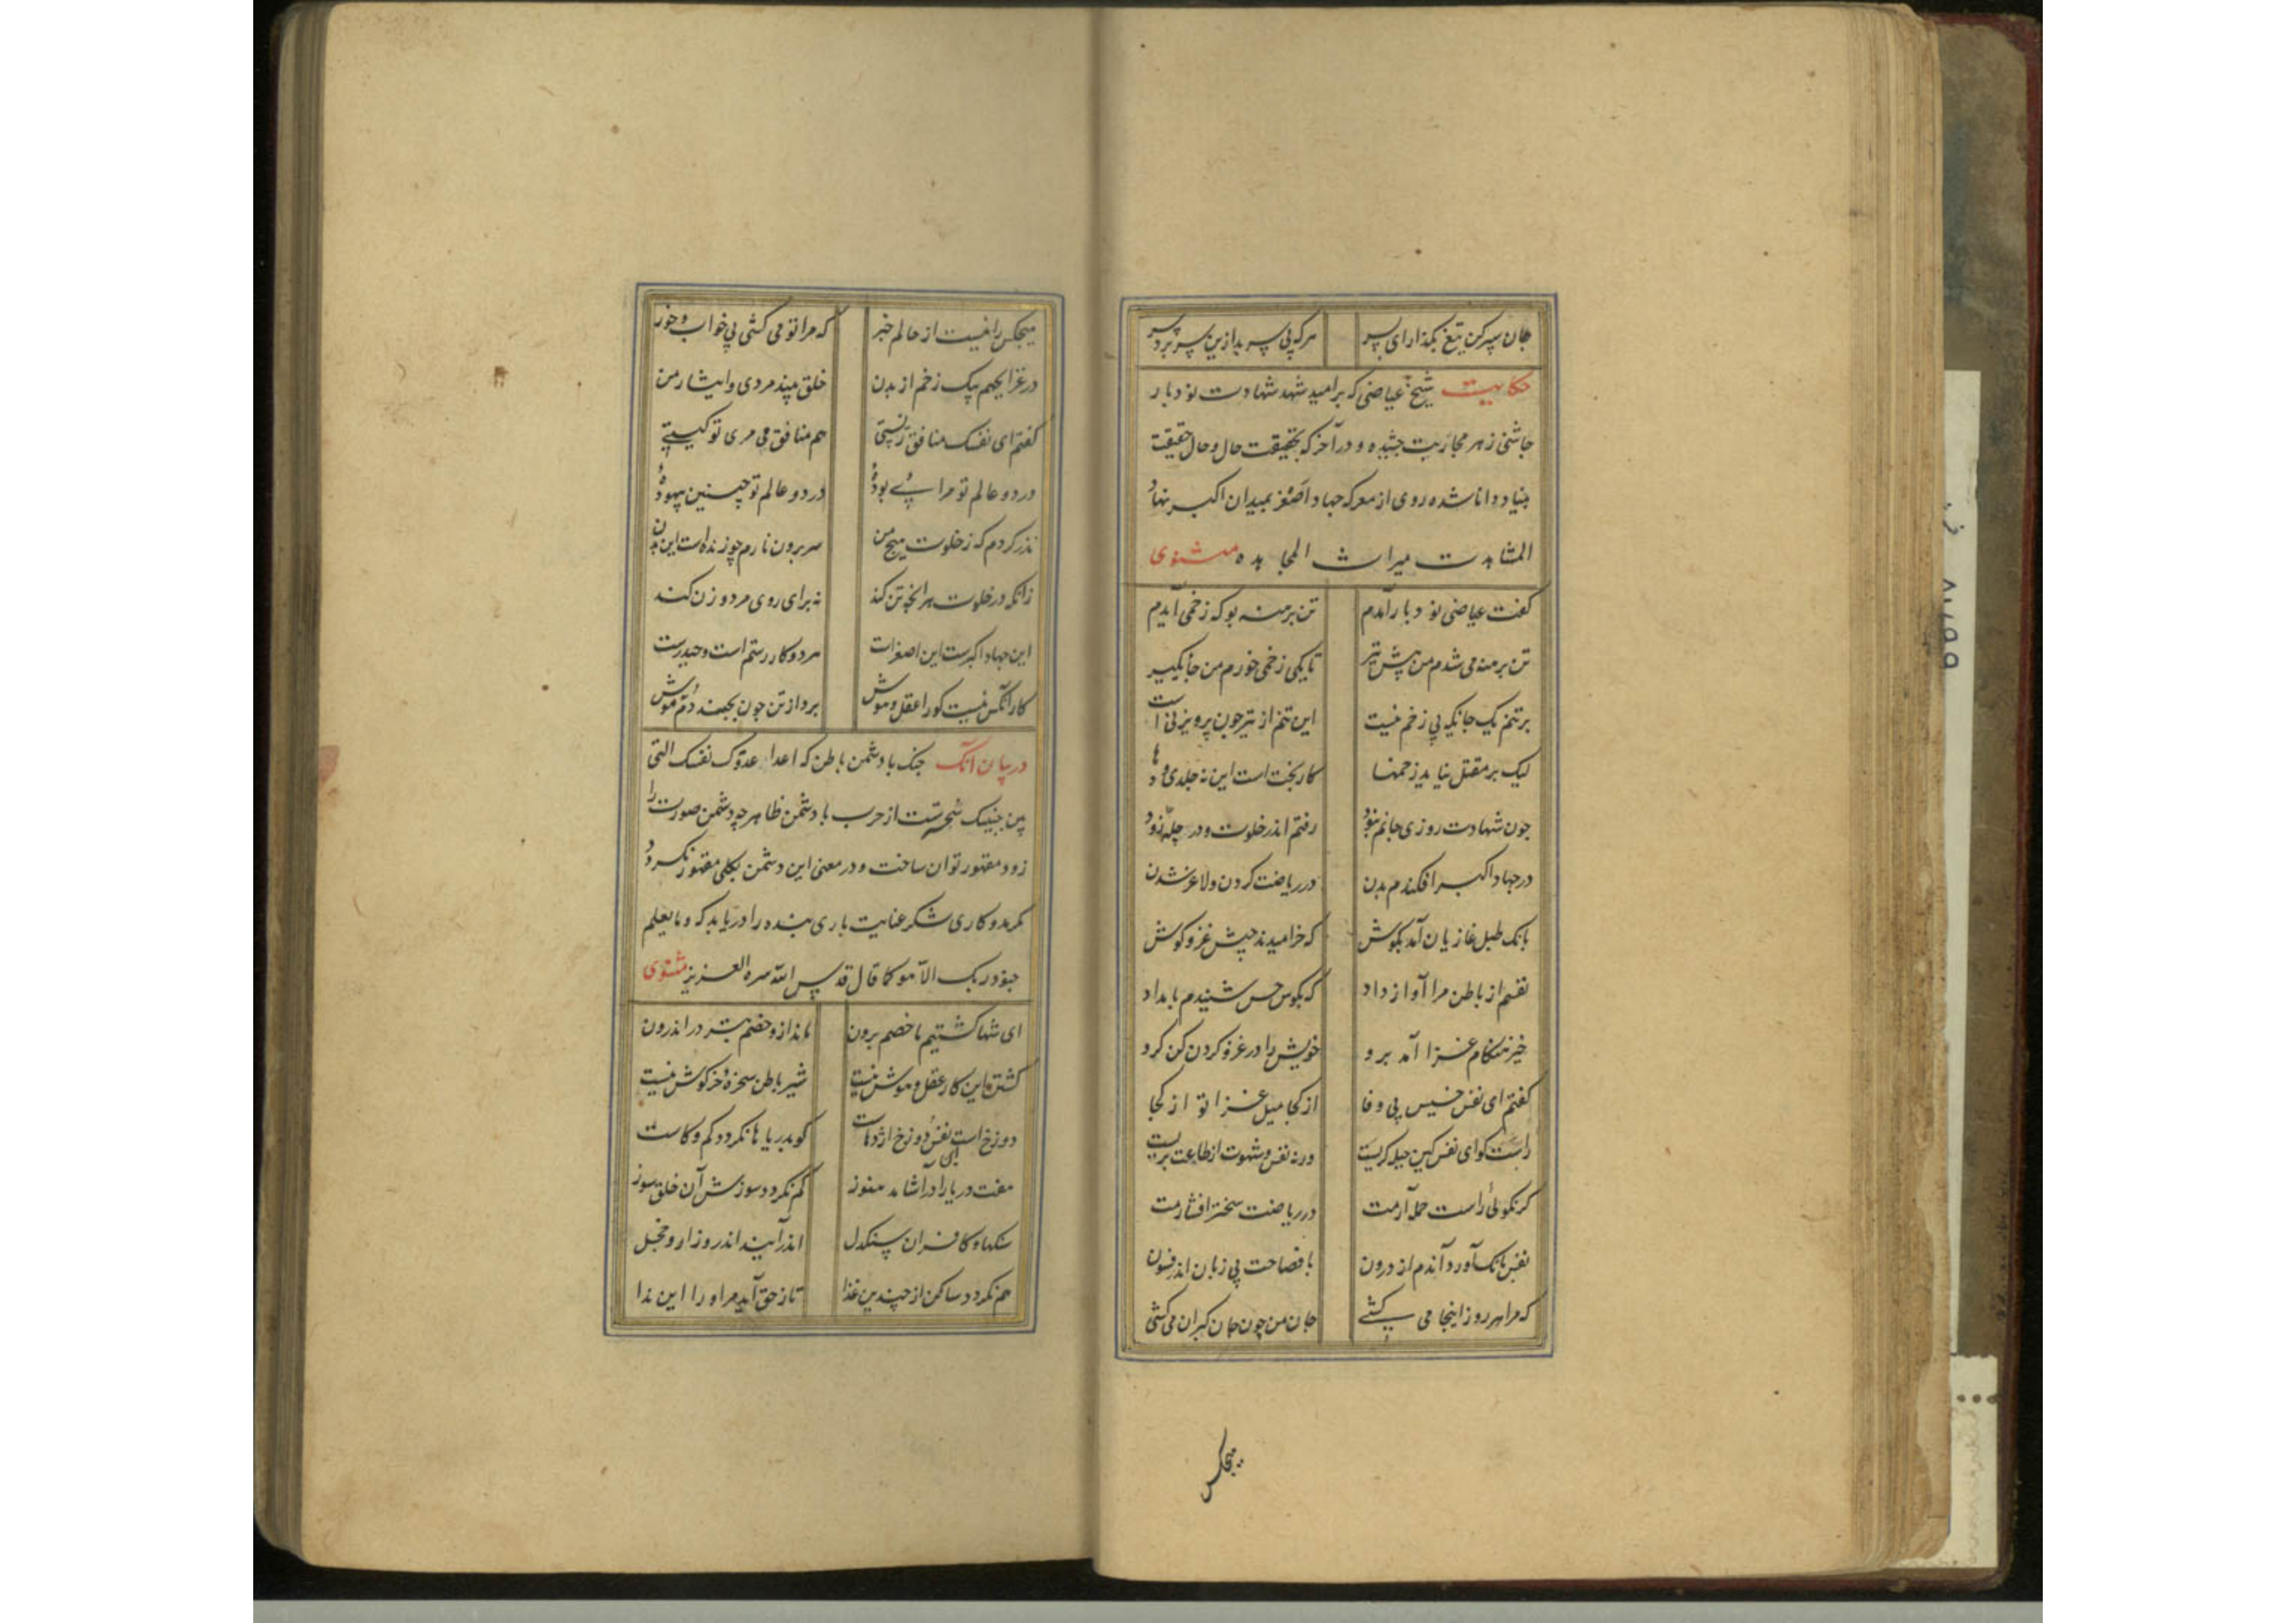 جان سپر کن تیغ بگذار ای پسر هر که بی سر بد ازین سر برد سر
حکایت شیخ عیاضی که بر امید شهد شهادت نود بار
چاشنی زهر محاربت چشیده و در آخر که بحقیقت حال و حال حقیقت
بینا و دانا شده روی از معرکه جهاد اصغر بمیدان اکبر نهاد
المشاهدت میراث المجاهده مثنوی
گفت عیاضی نود بار آمدم تن برهنه بو که زخمی آیدم
تن برهنه می شدم من پیش تیر تا یکی زخمی خورم من جایگیر
بر تنم یک جایگه بی زخم نیست این تنم از تیر چون پرویزنی است
لیک بر مقتل نیاید زخمها کار بخت است این نه جلدی و دها
چون شهادت روزی جانم نبود رفتم اندر خلوت و در چله زود
در جهاد اکبر افکندم بدن در ریاضت کردن و لاغر شدن
بانک طبل غازیان آمد بکوش که خرامیدند جیش غزو کوش
نفسم از باطن مرا آواز داد که بکوش حس شنیدم بامداد
خیز هنکام غزا آمد برو خویش را در غزو کردن کن کرو
گفتم ای نفس خسیس بی وفا از کجا میل غزا تو از کجا
راست کو ای نفس کین حیله کریست ورنه نفس و شهوت از طاعت بریست
کر نکوئی راست حمله آرمت در ریاضت سختر افشارمت
نفس بانک آورد آندم از درون با فصاحت بی زبان اندر فسون
که مرا هر روز اینجا می کشی جان من چون جان کبران می کشی
هیچکس
هیچکس را نیست از حالم خبر که مرا تو می کشی بی خواب و خور
در غزا بجهم بیک زخم از بدن خلق بیند مردی و ایثار من
گفتم ای نفسک منافق زیستی هم منافق می مری تو کیستی
در دو عالم تو مرایی بوده در دو عالم تو چنین بیهوده
نذر کردم که ز خلوت هیچ من سر برون نارم چو زنده است این بدن
زانکه در خلوت هر آنچه تن کند نه برای روی مرد و زن کند
این جهاد اکبرست این اصغر است هر دو کار رستم است و حیدرست
کار آنکس نیست کو را عقل و هوش برد از تن چون بجنبد دم موش
در بیان آنک جنک با دشمن باطن که اعدا عدوک نفسک التی
بین جنبیک سختست از حرب با دشمن ظاهر چه دشمن صورت را
زود مقهور توان ساخت و در معنی این دشمن بکلی مقهور نکردد
مکر مددکاری لشکر عنایت باری بنده را دریابد که و ما یعلم
جنود ربک الا هو کما قال قدس الله سره العزیز مثنوی
ای شها کشتیم ما خصم برون ماند ازو خصم بتر در اندرون
کشتن این کار عقل و هوش نیست شیر باطن سخره خرکوش نیست
دوزخ است این نفس و دوزخ اژدهاست کو بدریاها نکردد کم و کاست
هفت دریا را در آشامد هنوز کم نکردد سوزش آن خلق سوز
سنکها و کافران سنکدل اندر آیند اندر و زار و خجل
هم نکردد ساکن از چندین غذا تا ز حق آید مر او را این ندا